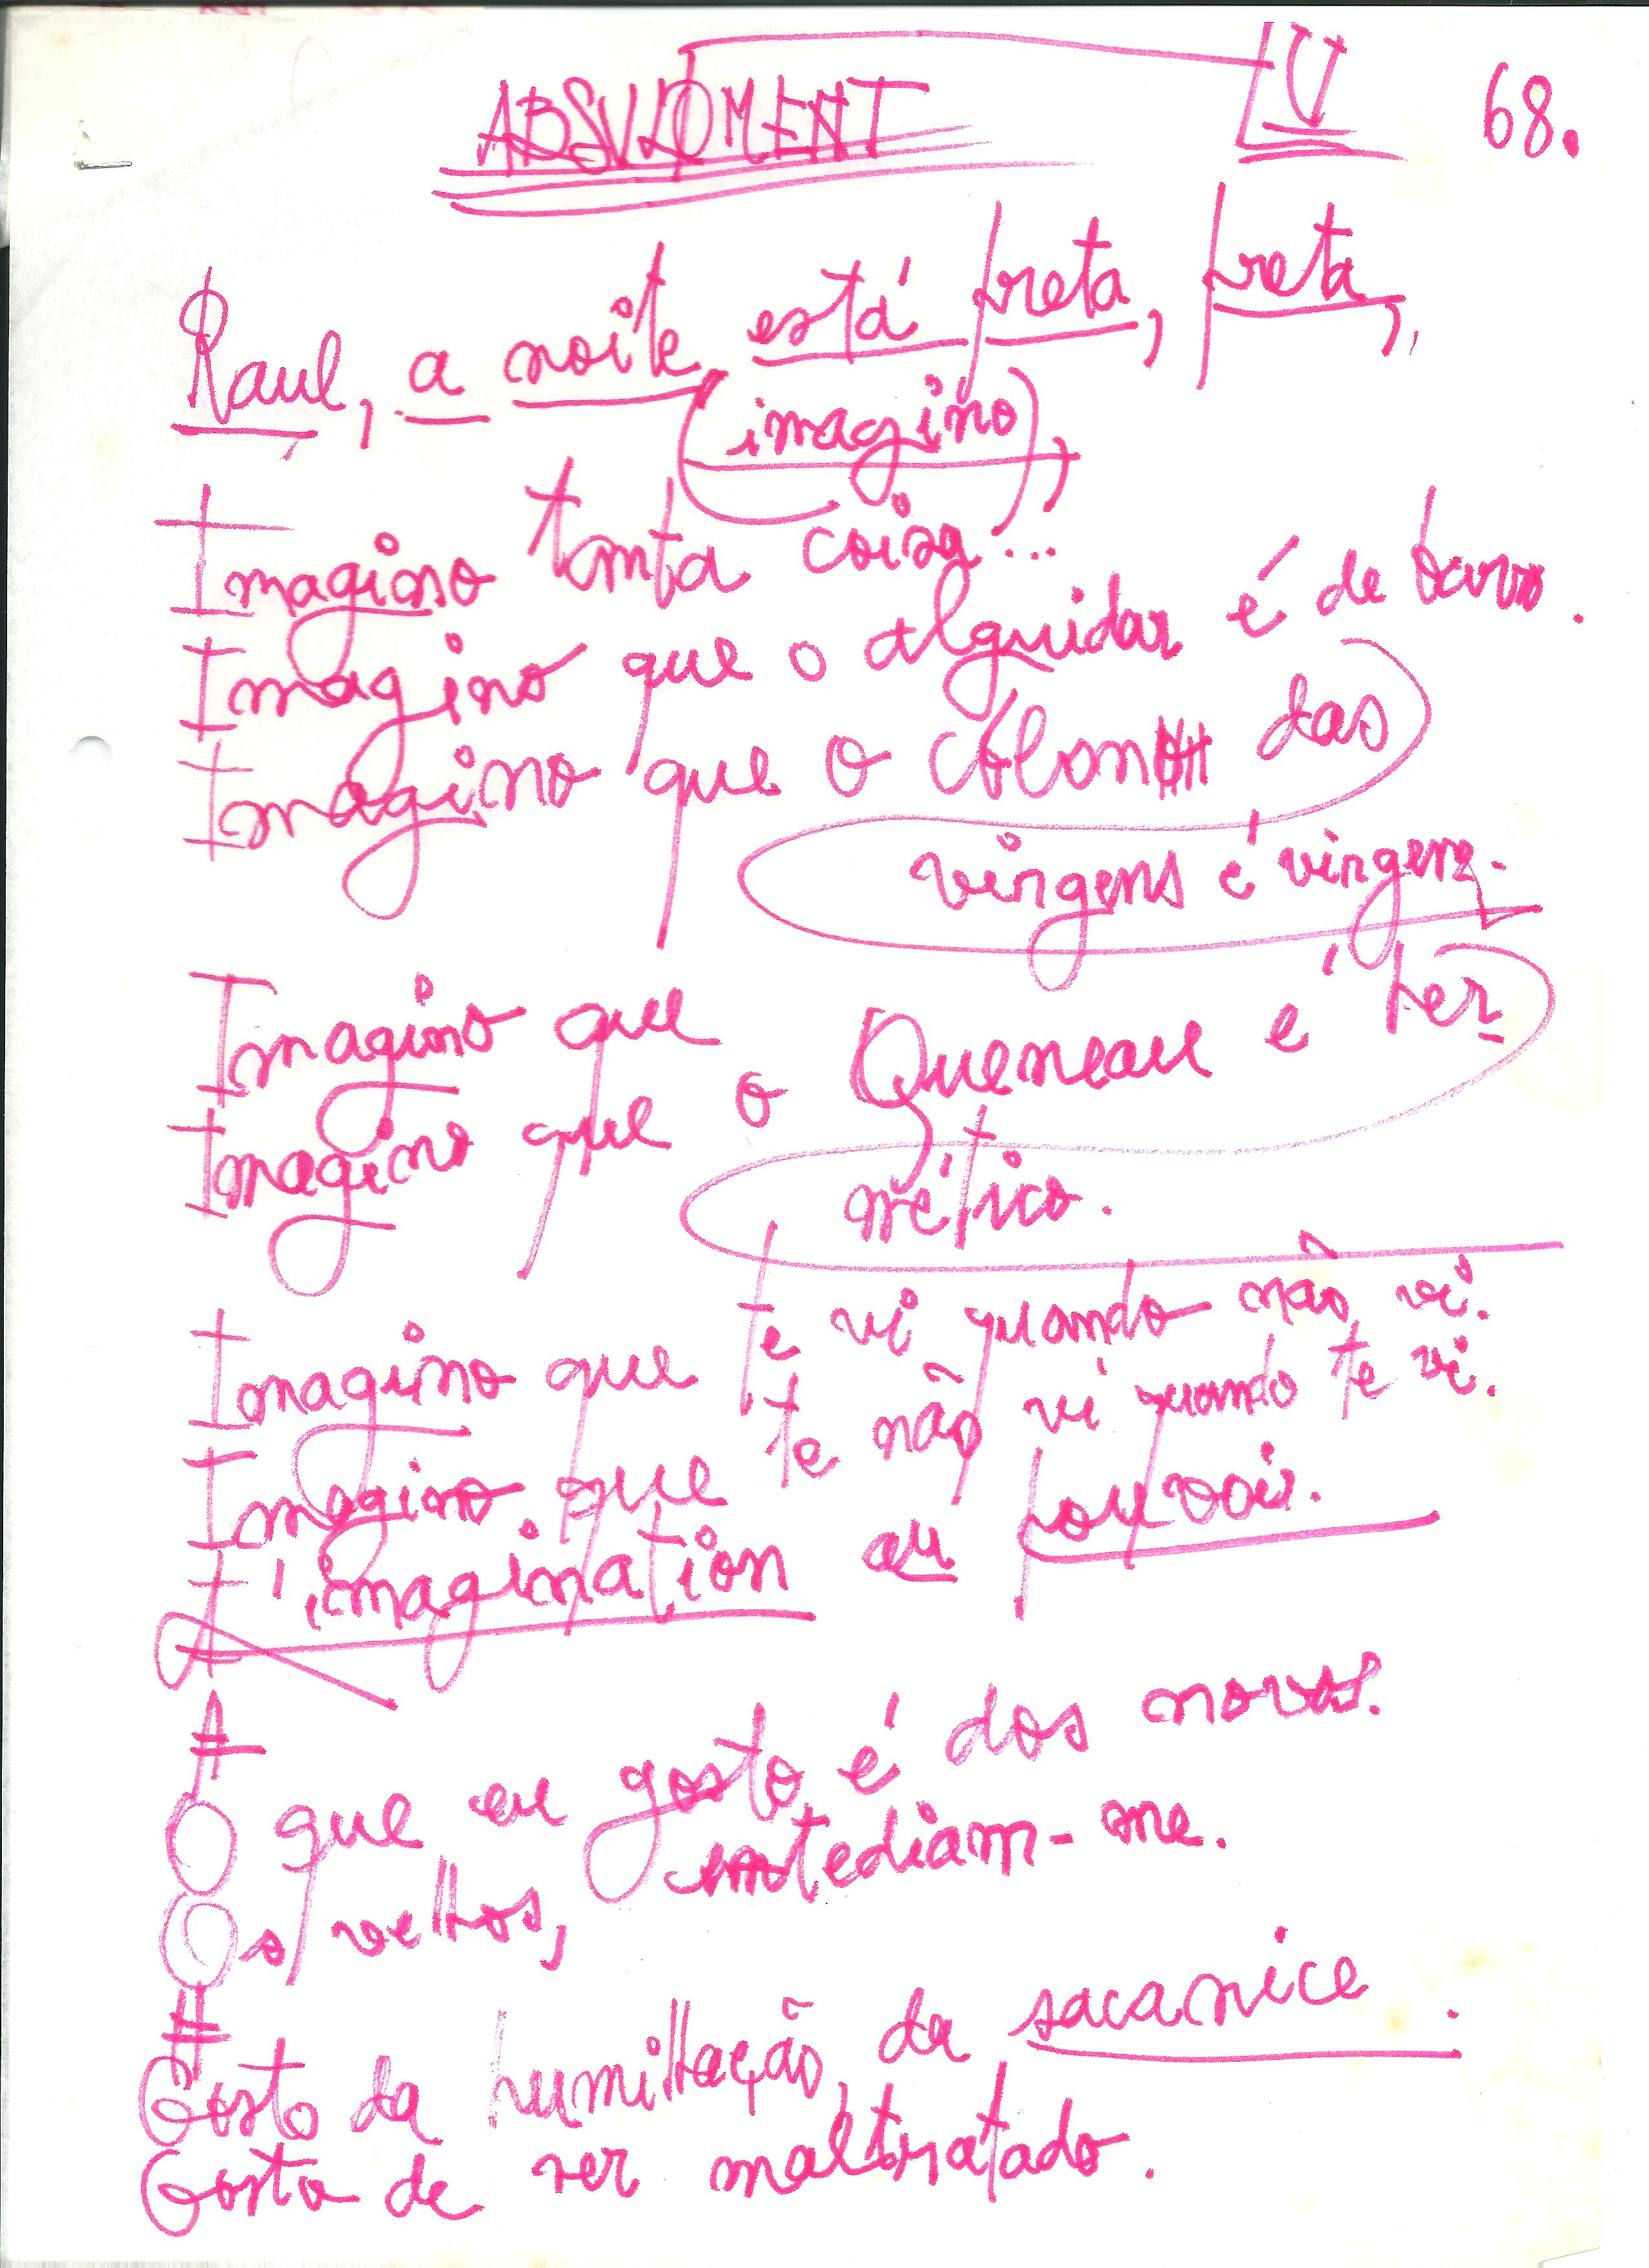 ABSURDMENT IV 68.
Raul, a noite está preta, preta,
(imagino),
Imagino tanta coisa...
Imagino que o alguidar é de barro.
Imagino que o cólon das
virgens é virgem.
Imagino que
Imagino que o Queneau é her
mético.
Imagino que te vi quando não vi.
Imagino que te não vi quando te vi.
L'imagination au pouvoir.
O que eu gosto é dos novos.
Os velhos, entediam-me.
Gosto da humilhação, da sacanice.
Gosto de ser maltratado.